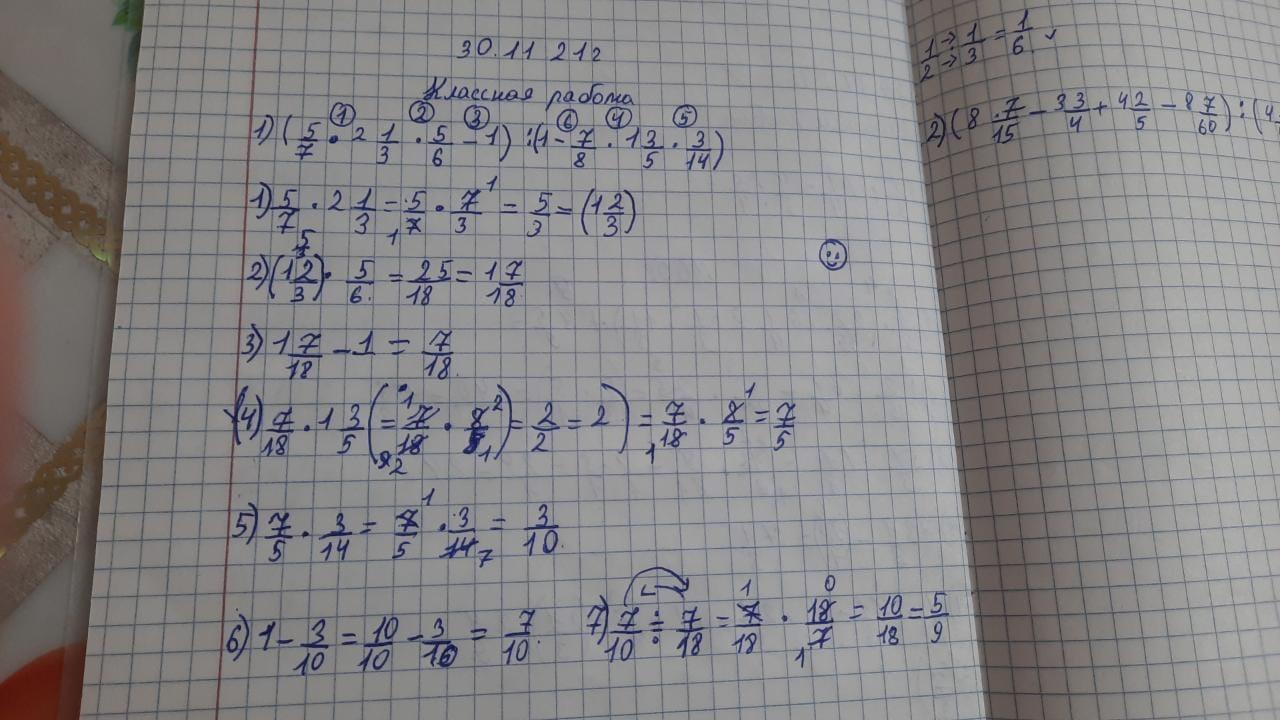 30.11 21г
Классная работа
① ② ③ ⑥ ④ ⑤
1) (5/7 · 2 1/3 · 5/6 - 1) : (1 - 7/8 · 1 3/5 · 3/14)
1) 5/7 · 2 1/3 = 5/7 · 7/3 = 5/3 = (1 2/3)
2) (1 2/3) · 5/6 = 25/18 = 1 7/18
3) 1 7/18 - 1 = 7/18
4) 7/18 · 1 3/5 (= 7/18 · 8/5) = 2/2 = 2) = 7/18 · 8/5 = 7/5
5) 7/5 · 3/14 = 7/5 · 3/14 = 3/10
6) 1 - 3/10 = 10/10 - 3/10 = 7/10
7) 7/10 : 7/18 = 7/18 · 18/7 = 10/18 = 5/9
1/2 → 1/3 = 1/6
2) (8 7/15 - 3 3/4 + 4 2/5 - 8 7/60) : (4